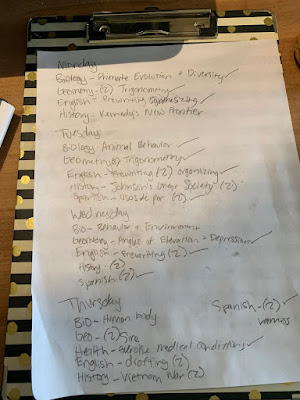 Monday
Biology - Primate Evolution + Diversity ✓
Geometry - (2) Trigonometry ✓
English - Prewriting Synthesizing ✓
History - Kennedy's New Frontier
Tuesday
Biology Animal Behavior ✓
Geometry (2) Trigonometry ✓
English - Prewriting (2) organizing ✓
History - Johnson's Great Society (2) ✓
Spanish - (2) ✓
Wednesday
Bio - Behavior + Environment
Geometry - Angles of Elevation + Depression ✓
English - Prewriting (2) ✓
History - (2) ✓
Spanish (2) ✓
Thursday
Spanish - (2) ✓
Bio - Human body
Geo - (2) Sine
Health - medical conditions ✓
English - drafting (2)
History - Vietnam War (2) ✓